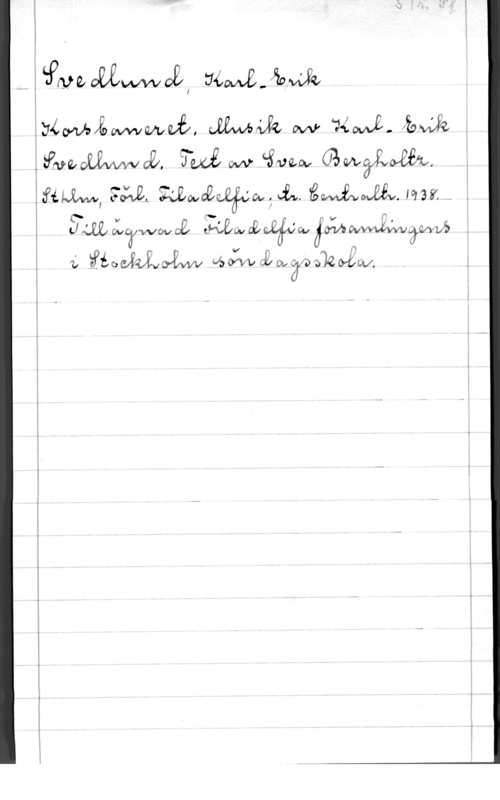 Svedlund, Karl-Erik
Korsbaneret. Musik av Karl-Erik
Svedlund. Text av Svea Bergholtz.
Sthlm, Förl. Filadelfia; tr. Centraltr. 1938.
Tillägnad Filadelfia församlingens
i Stockholm söndagsskola.